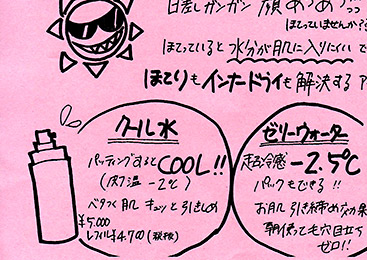 日差しガンガン 顔あつあつっ
ほてっていませんか?
ほてっていると水分が肌に入りにくいで
ほてりもインナードライも解決する
クール水
パッティングするとCOOL!!
(皮下温 -2℃)
ベタつく肌 キュッと引きしめ
¥5,000
レフィル¥4,700(税抜)
ゼリーウォーター
超冷感 -2.5℃
パックもできる!!
お肌引き締め効果
朝使っても毛穴目立ち
ゼロ!!